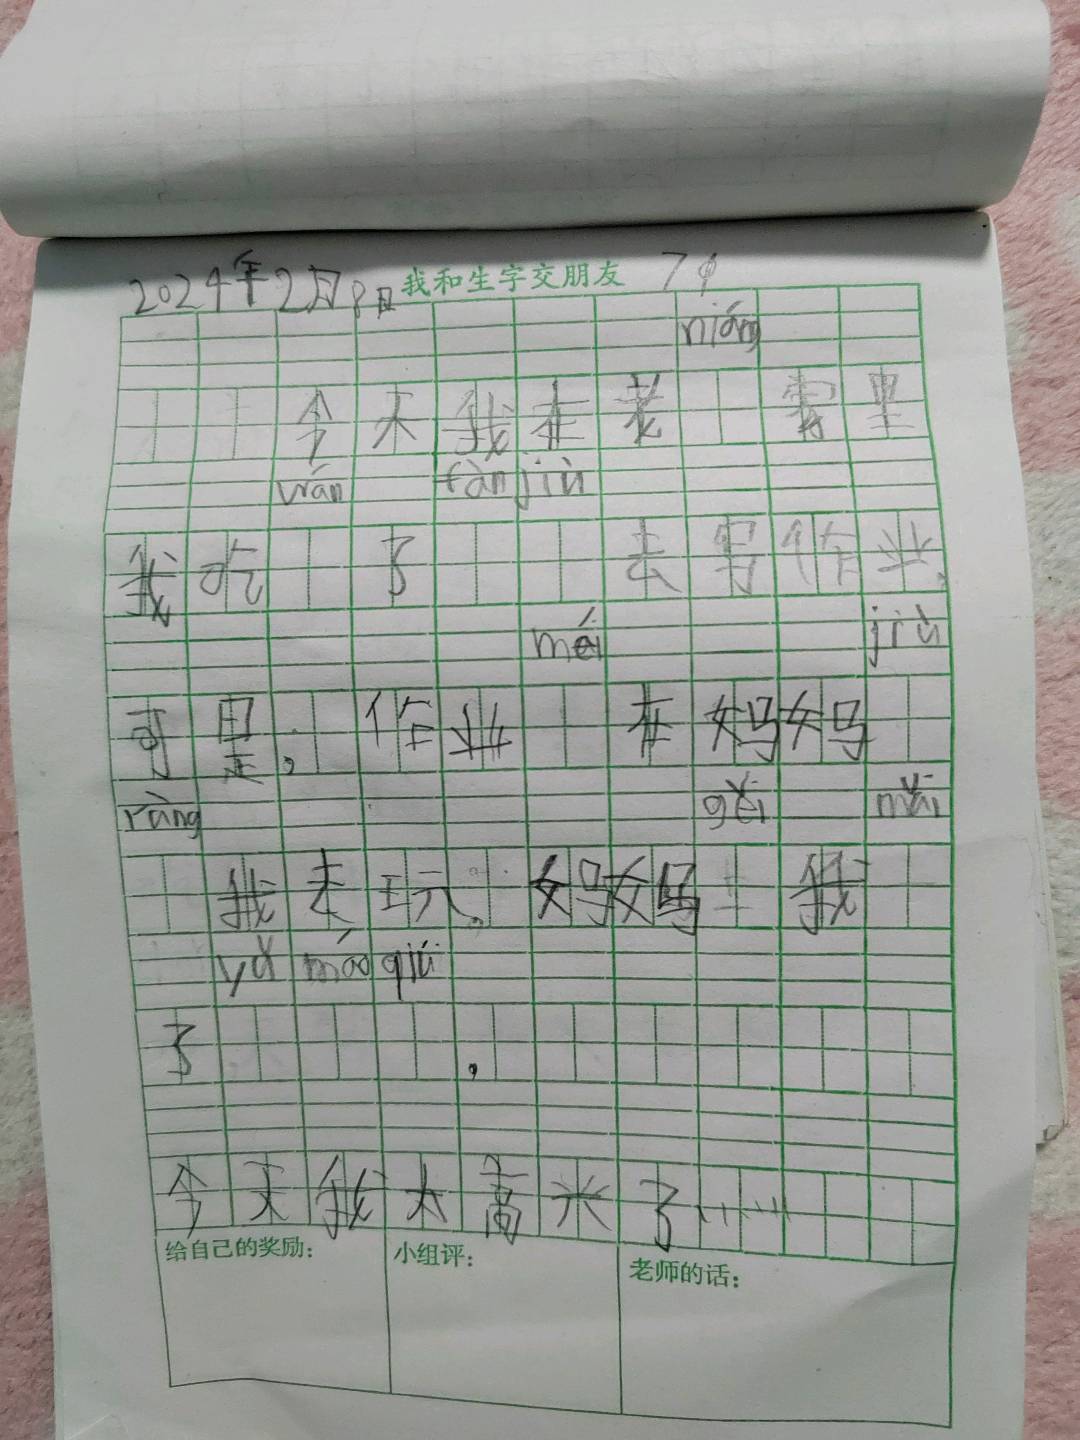 2024年2月8日 我和生字交朋友
niáng
今天我在老 家里
wán fàn jiù
我吃 了 去写作业,
méi jiù
可是, 作业 在妈妈
ràng gěi mǎi
我去玩。妈妈 我
yǔ máo qiú
了 .
今天我太高兴了……
给自己的奖励: 小组评: 老师的话: